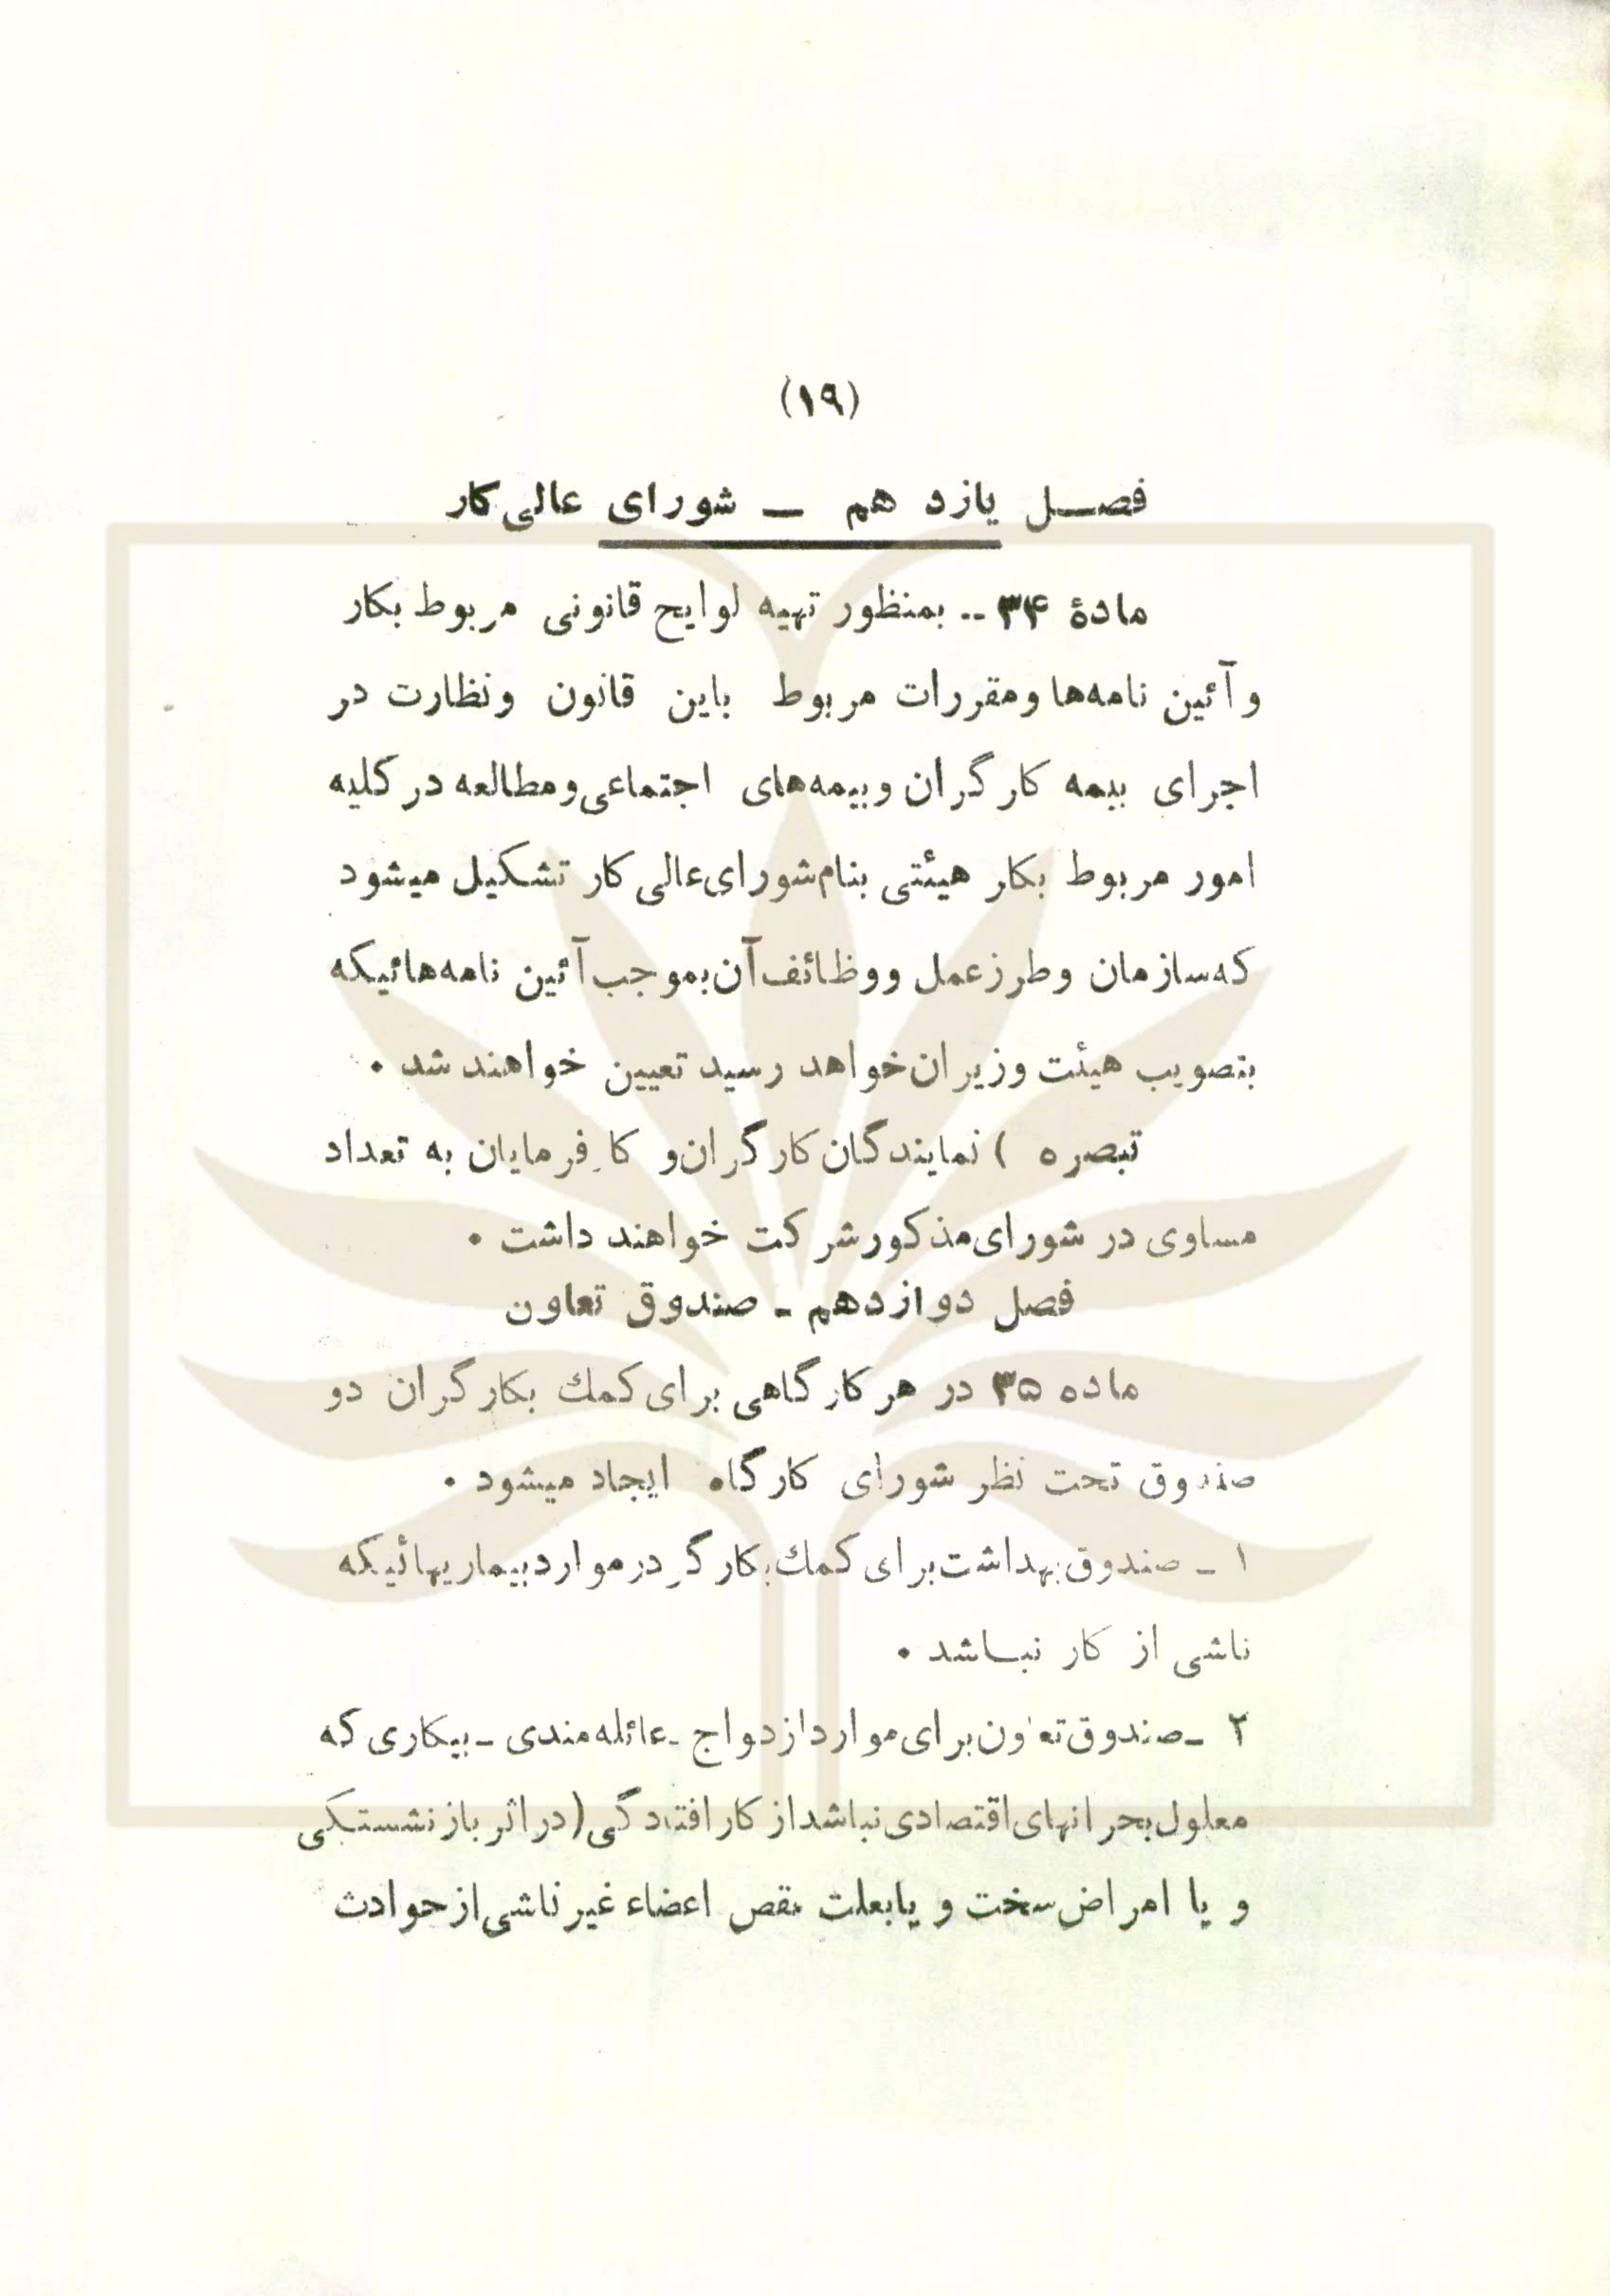 (۱۹)
فصل یازدهم ــ شورای عالی کار
مادهٔ ۳۴ -- بمنظور تهیه لوایح قانونی مربوط بکار
و آئین نامه‌ها و مقررات مربوط باین قانون و نظارت در
اجرای بیمه کارگران و بیمه‌های اجتماعی و مطالعه در کلیه
امور مربوط بکار هیئتی بنام شورای عالی کار تشکیل میشود
که سازمان و طرز عمل و وظائف آن بموجب آئین نامه‌هائیکه
بتصویب هیئت وزیران خواهد رسید تعیین خواهند شد .
تبصره ) نمایندگان کارگران و کارفرمایان به تعداد
مساوی در شورای مذکور شرکت خواهند داشت .
فصل دوازدهم - صندوق تعاون
ماده ۳۵ در هر کارگاهی برای کمك بکارگران دو
صندوق تحت نظر شورای کارگاه ایجاد میشود .
۱ - صندوق بهداشت برای کمك بکارگر در موارد بیماریهائیکه
ناشی از کار نباشد .
۲ - صندوق تعاون برای موارد ازدواج - عائله مندی - بیکاری که
معلول بحرانهای اقتصادی نباشد از کار افتادگی (در اثر بازنشستگی
و یا امراض سخت و یا بعلت نقص اعضاء غیر ناشی از حوادث